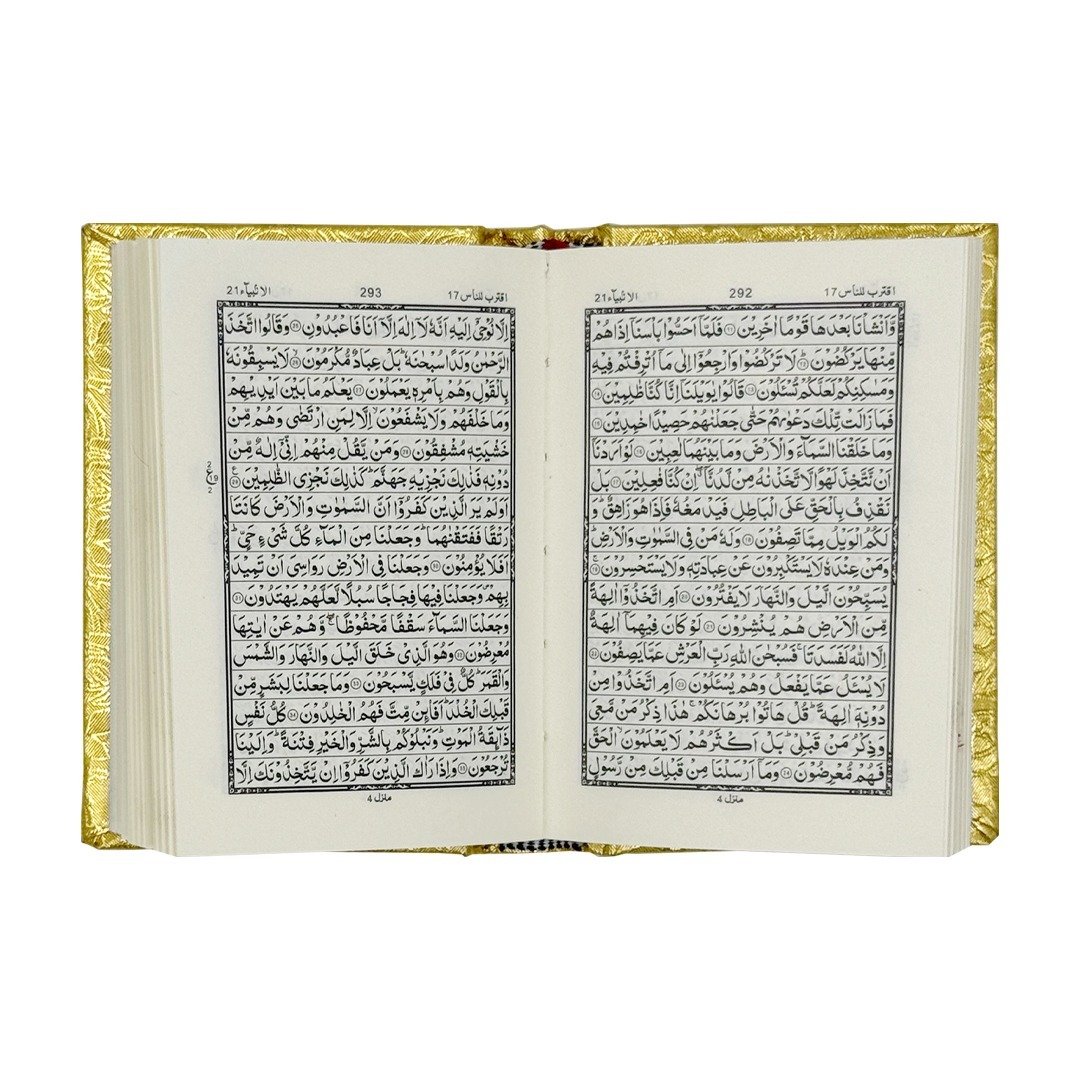 اقترب للناس 17 292 الانبيآء 21
وَّاَنْشَاْنَا بَعْدَهَا قَوْمًا اٰخَرِيْنَ ⑪ فَلَمَّآ اَحَسُّوْا بَاْسَنَآ اِذَاهُمْ
مِّنْهَا يَرْكُضُوْنَ ⑫ لَا تَرْكُضُوْا وَارْجِعُوْٓا اِلٰى مَآ اُتْرِفْتُمْ فِيْهِ
وَمَسٰكِنِكُمْ لَعَلَّكُمْ تُسْـَٔلُوْنَ ⑬ قَالُوْا يٰوَيْلَنَآ اِنَّا كُنَّا ظٰلِمِيْنَ ⑭
فَمَا زَالَتْ تِّلْكَ دَعْوٰىهُمْ حَتّٰى جَعَلْنٰهُمْ حَصِيْدًا خٰمِدِيْنَ ⑮
وَمَا خَلَقْنَا السَّمَآءَ وَالْاَرْضَ وَمَا بَيْنَهُمَا لٰعِبِيْنَ ⑯ لَوْ اَرَدْنَآ
اَنْ نَّتَّخِذَ لَهْوًا لَّاتَّخَذْنٰهُ مِنْ لَّدُنَّآ ۖ اِنْ كُنَّا فٰعِلِيْنَ ⑰ بَلْ
نَقْذِفُ بِالْحَقِّ عَلَى الْبَاطِلِ فَيَدْمَغُهٗ فَاِذَا هُوَ زَاهِقٌ ؕ وَ
لَكُمُ الْوَيْلُ مِمَّا تَصِفُوْنَ ⑱ وَلَهٗ مَنْ فِى السَّمٰوٰتِ وَالْاَرْضِ ؕ
وَمَنْ عِنْدَهٗ لَا يَسْتَكْبِرُوْنَ عَنْ عِبَادَتِهٖ وَلَا يَسْتَحْسِرُوْنَ ⑲
يُسَبِّحُوْنَ الَّيْلَ وَالنَّهَارَ لَا يَفْتُرُوْنَ ⑳ اَمِ اتَّخَذُوْٓا اٰلِهَةً
مِّنَ الْاَرْضِ هُمْ يُنْشِرُوْنَ ㉑ لَوْ كَانَ فِيْهِمَآ اٰلِهَةٌ
اِلَّا اللّٰهُ لَفَسَدَتَا ۚ فَسُبْحٰنَ اللّٰهِ رَبِّ الْعَرْشِ عَمَّا يَصِفُوْنَ ㉒
لَا يُسْـَٔلُ عَمَّا يَفْعَلُ وَهُمْ يُسْـَٔلُوْنَ ㉓ اَمِ اتَّخَذُوْا مِنْ
دُوْنِهٖٓ اٰلِهَةً ؕ قُلْ هَاتُوْا بُرْهَانَكُمْ ۚ هٰذَا ذِكْرُ مَنْ مَّعِىَ
وَذِكْرُ مَنْ قَبْلِىْ ؕ بَلْ اَكْثَرُهُمْ لَا يَعْلَمُوْنَ ۙ الْحَقَّ
فَهُمْ مُّعْرِضُوْنَ ㉔ وَمَآ اَرْسَلْنَا مِنْ قَبْلِكَ مِنْ رَّسُوْلٍ
منزل 4
اقترب للناس 17 293 الانبيآء 21
اِلَّا نُوْحِىْٓ اِلَيْهِ اَنَّهٗ لَآ اِلٰهَ اِلَّآ اَنَا فَاعْبُدُوْنِ ㉕ وَقَالُوا اتَّخَذَ
الرَّحْمٰنُ وَلَدًا سُبْحٰنَهٗ ؕ بَلْ عِبَادٌ مُّكْرَمُوْنَ ㉖ لَا يَسْبِقُوْنَهٗ
بِالْقَوْلِ وَهُمْ بِاَمْرِهٖ يَعْمَلُوْنَ ㉗ يَعْلَمُ مَا بَيْنَ اَيْدِيْهِمْ
وَمَا خَلْفَهُمْ وَلَا يَشْفَعُوْنَ ۙ اِلَّا لِمَنِ ارْتَضٰى وَهُمْ مِّنْ
خَشْيَتِهٖ مُشْفِقُوْنَ ㉘ وَمَنْ يَّقُلْ مِنْهُمْ اِنِّىْٓ اِلٰهٌ مِّنْ
دُوْنِهٖ فَذٰلِكَ نَجْزِيْهِ جَهَنَّمَ ؕ كَذٰلِكَ نَجْزِى الظّٰلِمِيْنَ ㉙
اَوَلَمْ يَرَ الَّذِيْنَ كَفَرُوْٓا اَنَّ السَّمٰوٰتِ وَالْاَرْضَ كَانَتَا
رَتْقًا فَفَتَقْنٰهُمَا ؕ وَجَعَلْنَا مِنَ الْمَآءِ كُلَّ شَىْءٍ حَىٍّ ؕ
اَفَلَا يُؤْمِنُوْنَ ㉚ وَجَعَلْنَا فِى الْاَرْضِ رَوَاسِىَ اَنْ تَمِيْدَ
بِهِمْ وَجَعَلْنَا فِيْهَا فِجَاجًا سُبُلًا لَّعَلَّهُمْ يَهْتَدُوْنَ ㉛
وَجَعَلْنَا السَّمَآءَ سَقْفًا مَّحْفُوْظًا ۚ وَّهُمْ عَنْ اٰيٰتِهَا
مُعْرِضُوْنَ ㉜ وَهُوَ الَّذِىْ خَلَقَ الَّيْلَ وَالنَّهَارَ وَالشَّمْسَ
وَالْقَمَرَ ؕ كُلٌّ فِىْ فَلَكٍ يَّسْبَحُوْنَ ㉝ وَمَا جَعَلْنَا لِبَشَرٍ مِّنْ
قَبْلِكَ الْخُلْدَ ؕ اَفَا۟ئِنْ مِّتَّ فَهُمُ الْخٰلِدُوْنَ ㉞ كُلُّ نَفْسٍ
ذَآئِقَةُ الْمَوْتِ ؕ وَنَبْلُوْكُمْ بِالشَّرِّ وَالْخَيْرِ فِتْنَةً ؕ وَاِلَيْنَا
تُرْجَعُوْنَ ㉟ وَاِذَا رَاٰكَ الَّذِيْنَ كَفَرُوْٓا اِنْ يَّتَّخِذُوْنَكَ اِلَّا
2
ع 19
2
منزل 4